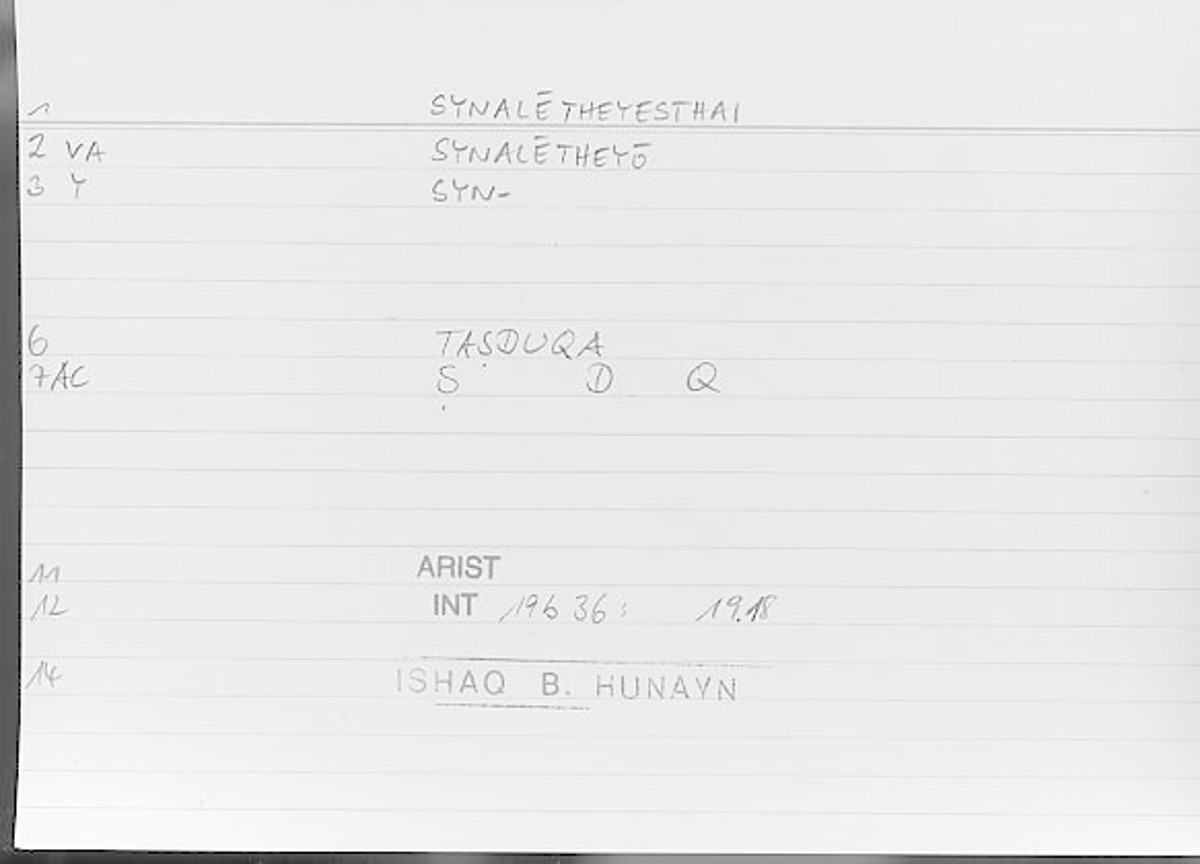 1 SYNALĒTHEYESTHAI
2 VA SYNALĒTHEYŌ
3 Y SYN-
6 TAṢDUQA
7AC Ṣ D Q
11 ARIST
12 INT 19b 36: 19.18
14 ISHAQ B. HUNAYN